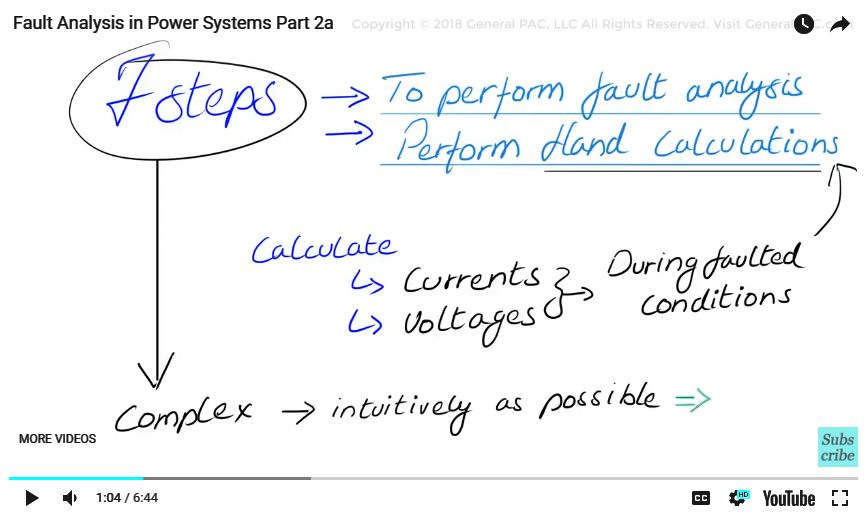 Fault Analysis in Power Systems Part 2a
Copyright © 2018 General PAC, LLC All Rights Reserved. Visit General C.com
7 steps → To perform fault analysis
→ Perform Hand Calculations
Calculate
↳ Currents
↳ Voltages
} → During faulted
conditions
Complex → intuitively as possible ⇒
MORE VIDEOS
Subs
cribe
1:04 / 6:44
CC
HD
YouTube